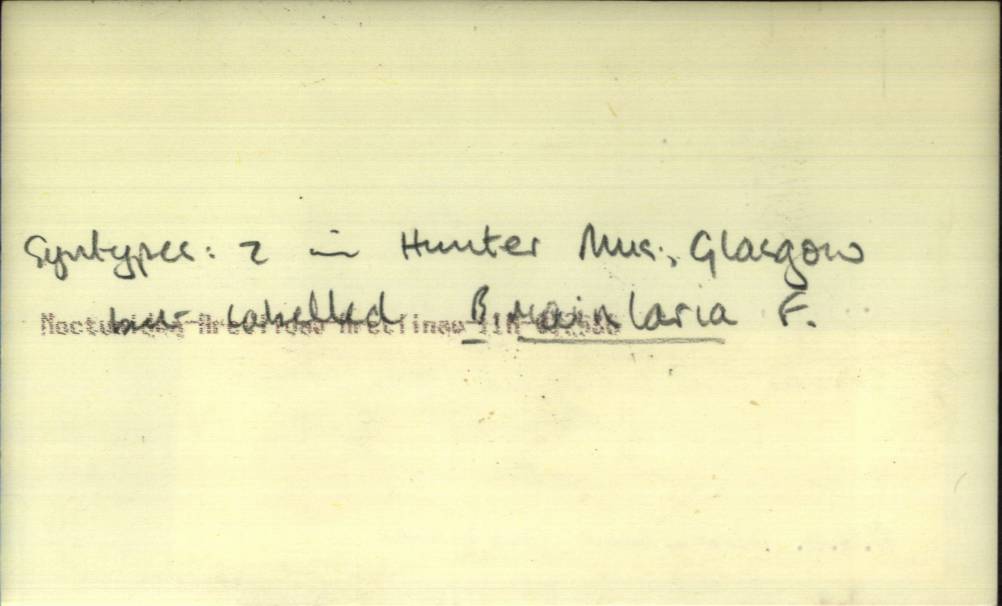 Syntypes: 2 in Hunter Mus., Glasgow
but labelled B. F.
Noctuidae Arctiidae Arctiinae